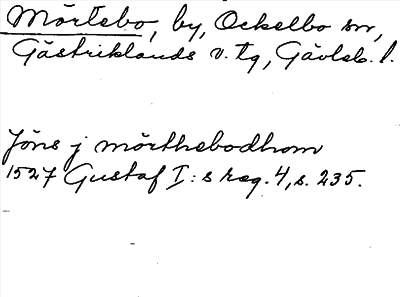 Mörtebo, by, Ockelbo sn,
Gästriklands v. tg, Gävleb. l.
Jöns j mörthebodhom
1527 Gustaf I:s reg. 4, s. 235.